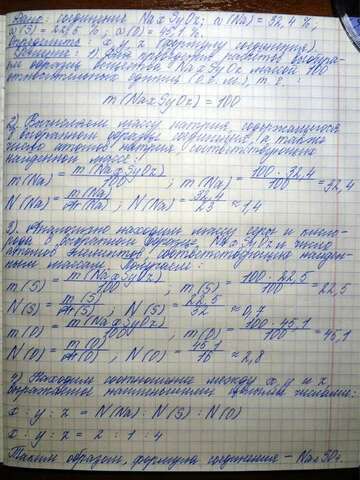 Дано: соединение NaxSyOz; ω(Na) = 32,4 %,
ω(S) = 22,5 %; ω(O) = 45,1 %.
Определить: x, y, z (формулу соединения).
Решение: 1) Для проведения расчета выбира-
ем образец вещества NaxSyOz массой 100
относительных единиц (о.е.м.), т. е.:
m(NaxSyOz) = 100
2) Вычисляем массу натрия, содержащегося
в выбранном образце соединения, а также
число атомов натрия, соответствующих
найденной массе:
m(Na) = m(NaxSyOz)/100 ; m(Na) = 100 · 32,4/100 = 32,4
N(Na) = m(Na)/Ar(Na) ; N(Na) = 32,4/23 ≈ 1,4
3) Аналогично находим массу серы и кисло-
рода в выбранном образце NaxSyOz и число
атомов элементов, соответствующих найден-
ным массам. Получаем:
m(S) = m(NaxSyOz)/100 ; m(S) = 100 · 22,5/100 = 22,5
N(S) = m(S)/Ar(S) ; N(S) = 22,5/32 ≈ 0,7
m(O) = m(NaxSyOz)/100 ; m(O) = 100 · 45,1/100 = 45,1
N(O) = m(O)/Ar(O) ; N(O) = 45,1/16 ≈ 2,8
4) Находим соотношение между x, y и z,
выраженное наименьшими целыми числами:
x : y : z = N(Na) : N(S) : N(O)
x : y : z = 2 : 1 : 4
Таким образом, формула соединения – Na₂SO₄.